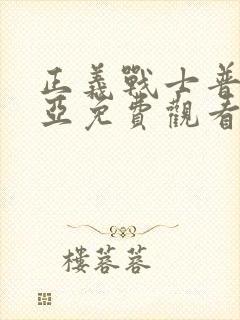 正義戰士普
亞免費觀看
樓蓉蓉